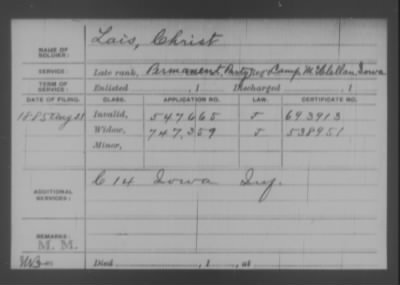 Lais, Christ
NAME OF SOLDIER:
SERVICE: Late rank, Permanent Party Reg Camp McClellan, Iowa
TERM OF SERVICE: Enlisted , 1 Discharged , 1
DATE OF FILING. CLASS. APPLICATION NO. LAW. CERTIFICATE NO.
1885 Aug 21 Invalid, 547665 J 693913
Widow, 747,359 J 538951
Minor,
C 14 Iowa Inf.
ADDITIONAL SERVICES:
REMARKS:
M. M.
Died , 1 , at